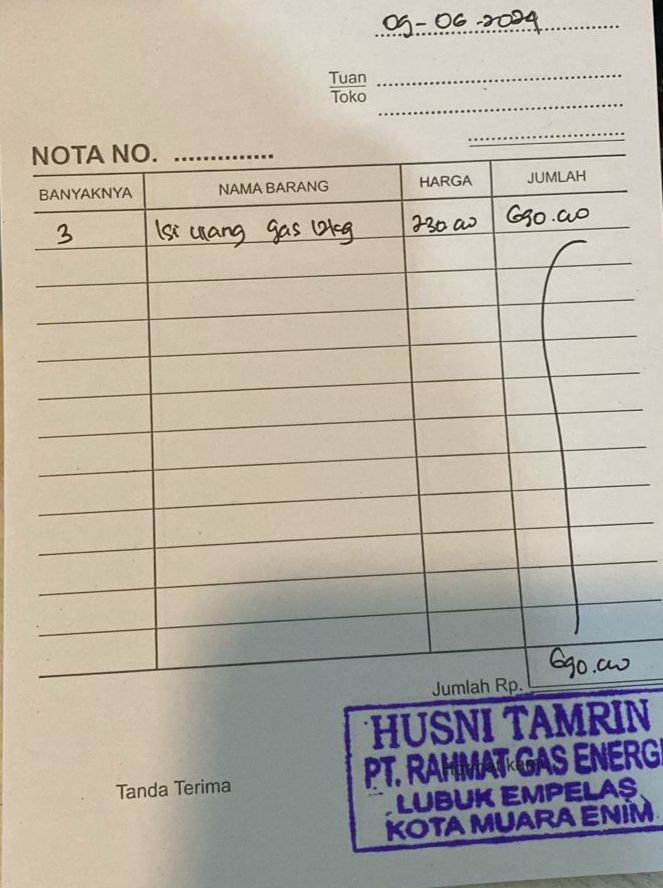 09-06-2024
Tuan
Toko
NOTA NO. ...............
BANYAKNYA NAMA BARANG HARGA JUMLAH
3 Isi ulang gas 12kg 230.000 690.000
690.000
Jumlah Rp.
HUSNI TAMRIN
PT. RAHMAT GAS ENERGI
Tanda Terima
LUBUK EMPELAS
KOTA MUARA ENIM